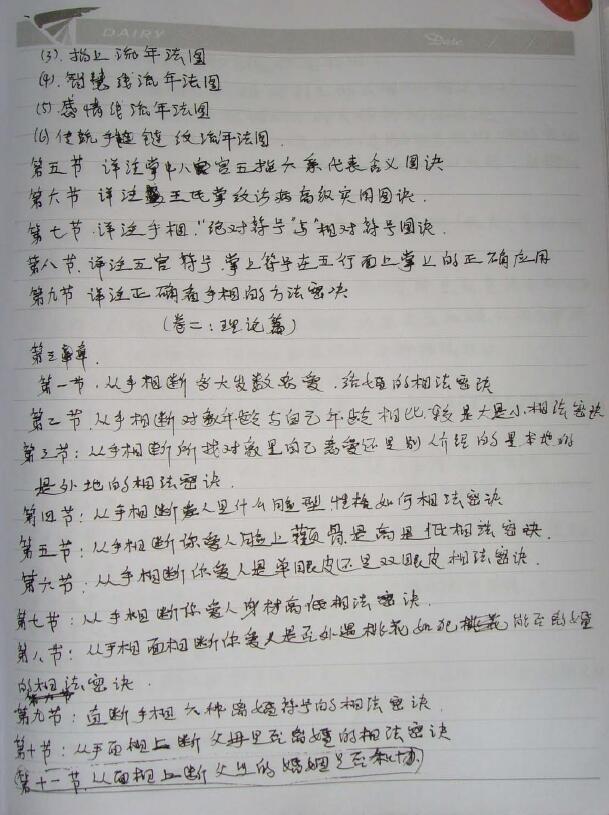 DAIRY
Date
(3).指上流年法图
(4).智慧线流年法图
(5)感情线流年法图
(6)传统手链纹流年法图.
第五节 详注掌中八宫五指六亲代表含义图诀
第六节 详注王氏掌纹诊病高级实用图诀.
第七节.详注手相."绝对符号"与"相对符号图诀.
第八节.详注五官符号.掌上符号在五行面上掌上的正确应用
第九节 详注正确看手相的方法密诀
(卷二:理论篇)
第三章.
第一节.从手相断多大岁数恋爱.结婚的相法密诀
第二节.从手相断对象年龄与自己年龄相比较是大是小相法密诀
第三节:从手相断所找对象是自己恋爱还是别人介绍的是本地的
是外地的相法密诀.
第四节:从手相断爱人是什么脸型性格如何相法密诀
第五节:从手相断你爱人脸上颧骨是高是低相法密诀.
第六节.从手相断你爱人是单眼皮还是双眼皮相法密诀.
第七节:从手相断你爱人身材高低相法密诀.
第八节:从手相面相断你爱人是否外遇桃花如犯桃花能否离婚
的相法密诀.
第九节:直断手相六种离婚符号的相法密诀.
第十节:从手面相上断父母是否离婚的相法密诀
第十一节.从面相上断父母的婚姻是否和协.